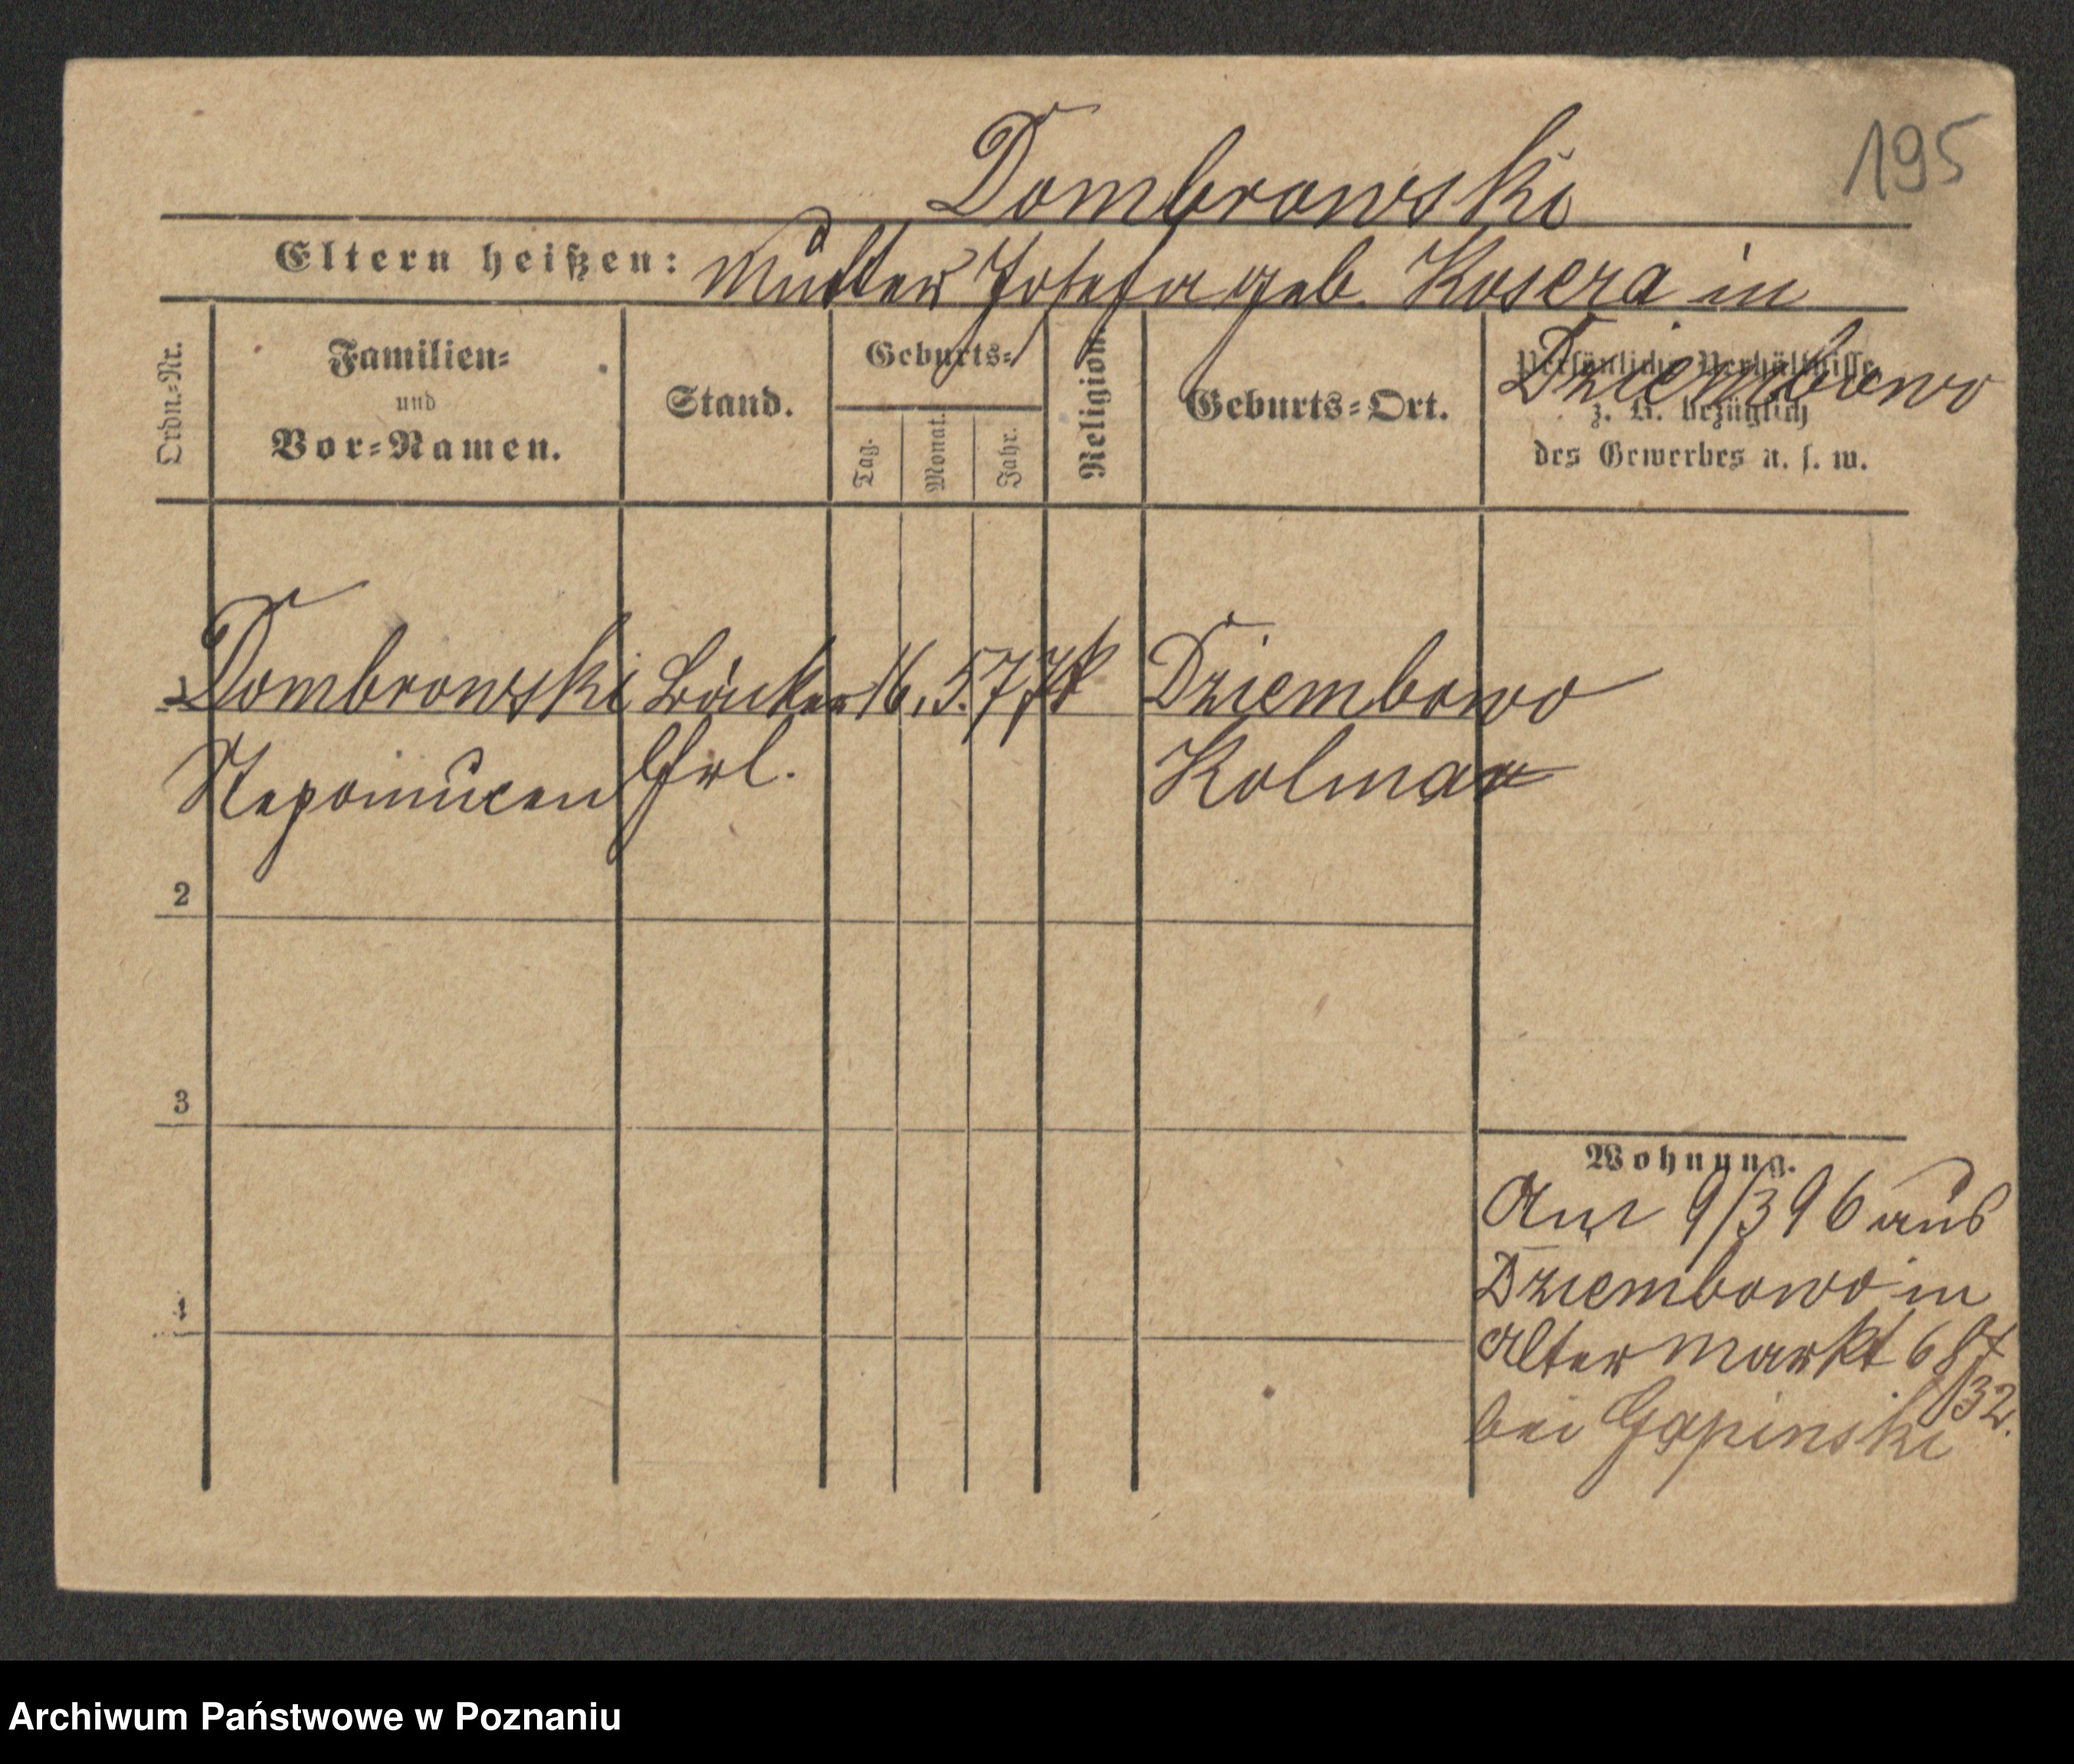 195
Dombrowski
Eltern heißen: Mutter Josefa geb. Kosera in
Dziembowo
Ordn.-Nr.
Familien-
und
Vor-Namen.
Stand.
Geburts-
Tag.
Monat.
Jahr.
Religion.
Geburts-Ort.
Persönliche Verhältnisse
z. B. bezüglich
des Gewerbes u. s. w.
1 Dombrowski Bäcker 16. 5. 77 k Dziembowo
Nepomucen Kolmar
2
3
4
Wohnung.
9/3 96 aus
Dziembowo in
Alter Markt 68
/32.
bei Gapinski
Archiwum Państwowe w Poznaniu